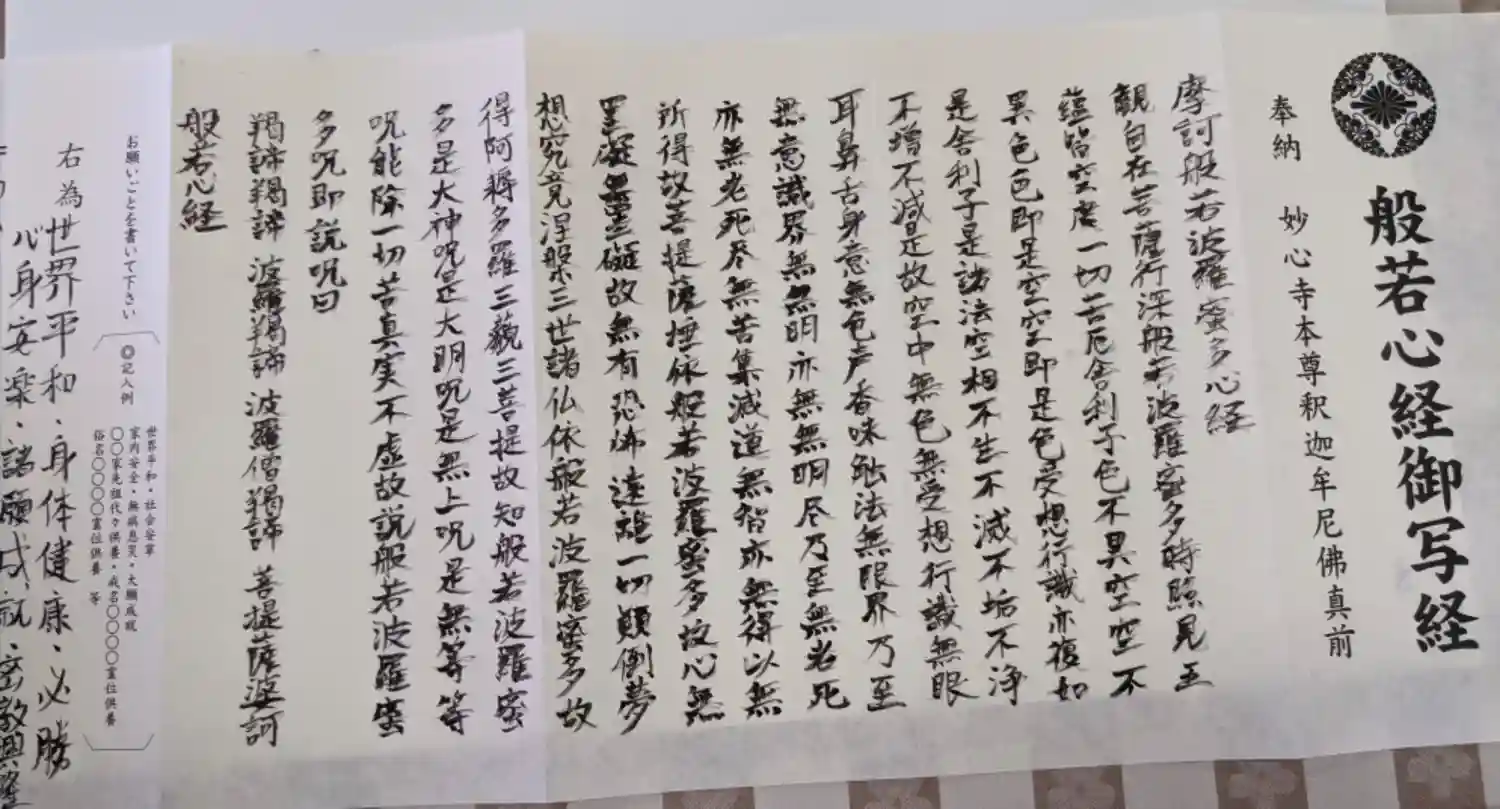 般若心経御写経
奉納　妙心寺本尊釈迦牟尼佛真前
摩訶般若波羅蜜多心経
観自在菩薩行深般若波羅蜜多時照見五
蘊皆空度一切苦厄舎利子色不異空空不
異色色即是空空即是色受想行識亦復如
是舎利子是諸法空相不生不滅不垢不浄
不増不減是故空中無色無受想行識無眼
耳鼻舌身意無色声香味触法無限界乃至
無意識界無無明亦無無明尽乃至無老死
亦無老死尽無苦集滅道無智亦無得以無
所得故菩提薩埵依般若波羅蜜多故心無
罣礙無罣礙故無有恐怖遠離一切顛倒夢
想究竟涅槃三世諸仏依般若波羅蜜多故
得阿耨多羅三藐三菩提故知般若波羅蜜
多是大神呪是大明呪是無上呪是無等等
呪能除一切苦真実不虚故説般若波羅蜜
多呪即説呪曰
羯諦羯諦　波羅羯諦　波羅僧羯諦　菩提薩婆訶
般若心経
お願いごとを書いて下さい
◎記入例
世界平和・社会安寧
家内安全・無病息災・大願成就
〇〇家先祖代々供養・戒名〇〇〇〇霊位供養
俗名〇〇〇〇霊位供養　等
右為世界平和・身体健康・必勝
心身安楽・諸願成就・密教興隆